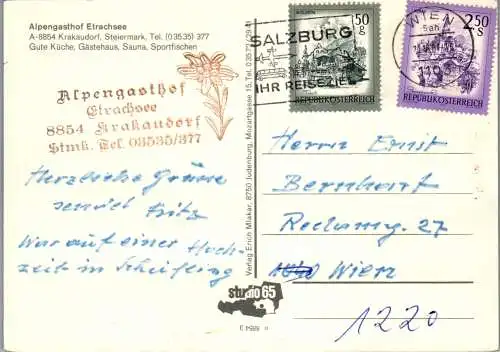 Alpengasthof Etrachsee
A-8854 Krakaudorf, Steiermark, Tel. (0 35 35) 377
Gute Küche, Gästehaus, Sauna, Sportfischen
Alpengasthof
Etrachsee
8854 Krakaudorf
Stmk. Tel. 03535/377
Herzliche Grüsse
sendet Fritz
War auf einer Hoch
zeit in Scheifling
Verlag Erich Mlakar, 8750 Judenburg, Mozartgasse 15, Tel. 0 35 72
studio 65
SALZBURG
IHR REISEZIEL
WIEN
50 g
REPUBLIK ÖSTERREICH
2.50 S
REPUBLIK ÖSTERREICH
Herrn Ernst
Bernhart
27
Wien
1220